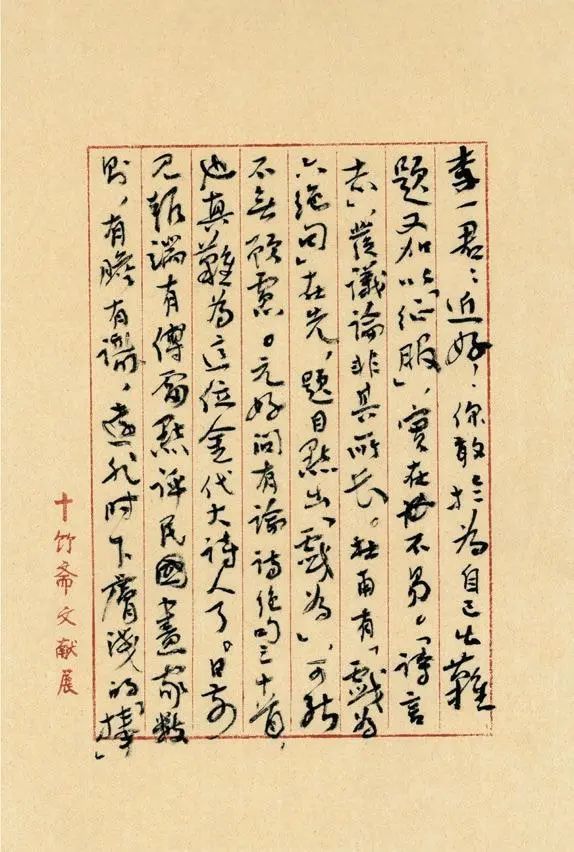 李一君：近好，你敢於為自己出難
題又加以「征服」，實在也不易。「詩言
志」，發議論非其所长。杜甫有「戲為
六絕句」在先，題目點出「戲為」，可能
不無顧慮。元好問有論詩绝句三十首，
也真難為這位金代大詩人了。日前
见報端有傅雷點評民國畫家數
則，有膽有識，遠非时下膚淺的「捧」
十竹斋文献展